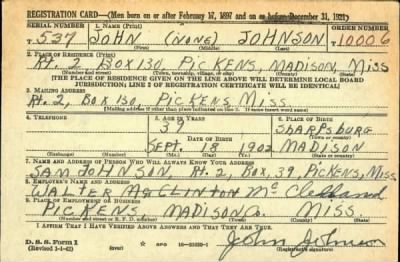 REGISTRATION CARD—(Men born on or after February 17, 1897 and on or before December 31, 1921)
SERIAL NUMBER 1. NAME (Print) ORDER NUMBER
T 537 JOHN (NONE) JOHNSON T 10006
(First) (Middle) (Last)
2. PLACE OF RESIDENCE (Print)
Rt. 2, BOX 130, PICKENS, MADISON, MISS
(Number and street) (Town, township, village, or city) (County) (State)
[THE PLACE OF RESIDENCE GIVEN ON THE LINE ABOVE WILL DETERMINE LOCAL BOARD
JURISDICTION; LINE 2 OF REGISTRATION CERTIFICATE WILL BE IDENTICAL]
3. MAILING ADDRESS
Rt. 2, BOX 130, PICKENS, MISS.
[Mailing address if other than place indicated on line 2. If same, insert word same]
4. TELEPHONE 5. AGE IN YEARS 6. PLACE OF BIRTH
39 SHARPSBURG
DATE OF BIRTH (Town or county)
SEPT. 18 1902 MADISON
(Exchange) (Number) (Mo.) (Day) (Yr.) (State or country)
7. NAME AND ADDRESS OF PERSON WHO WILL ALWAYS KNOW YOUR ADDRESS
SAM JOHNSON, Rt. 2, BOX, 39, PICKENS, MISS
8. EMPLOYER'S NAME AND ADDRESS
WALTER McCLINTON McClelland
9. PLACE OF EMPLOYMENT OR BUSINESS
PICKENS MADISON Co. MISS.
(Number and street or R. F. D. number) (Town) (County) (State)
I AFFIRM THAT I HAVE VERIFIED ABOVE ANSWERS AND THAT THEY ARE TRUE.
D. S. S. Form 1
(Revised 1-1-42) (over) GPO John Johnson
(Registrant's signature)